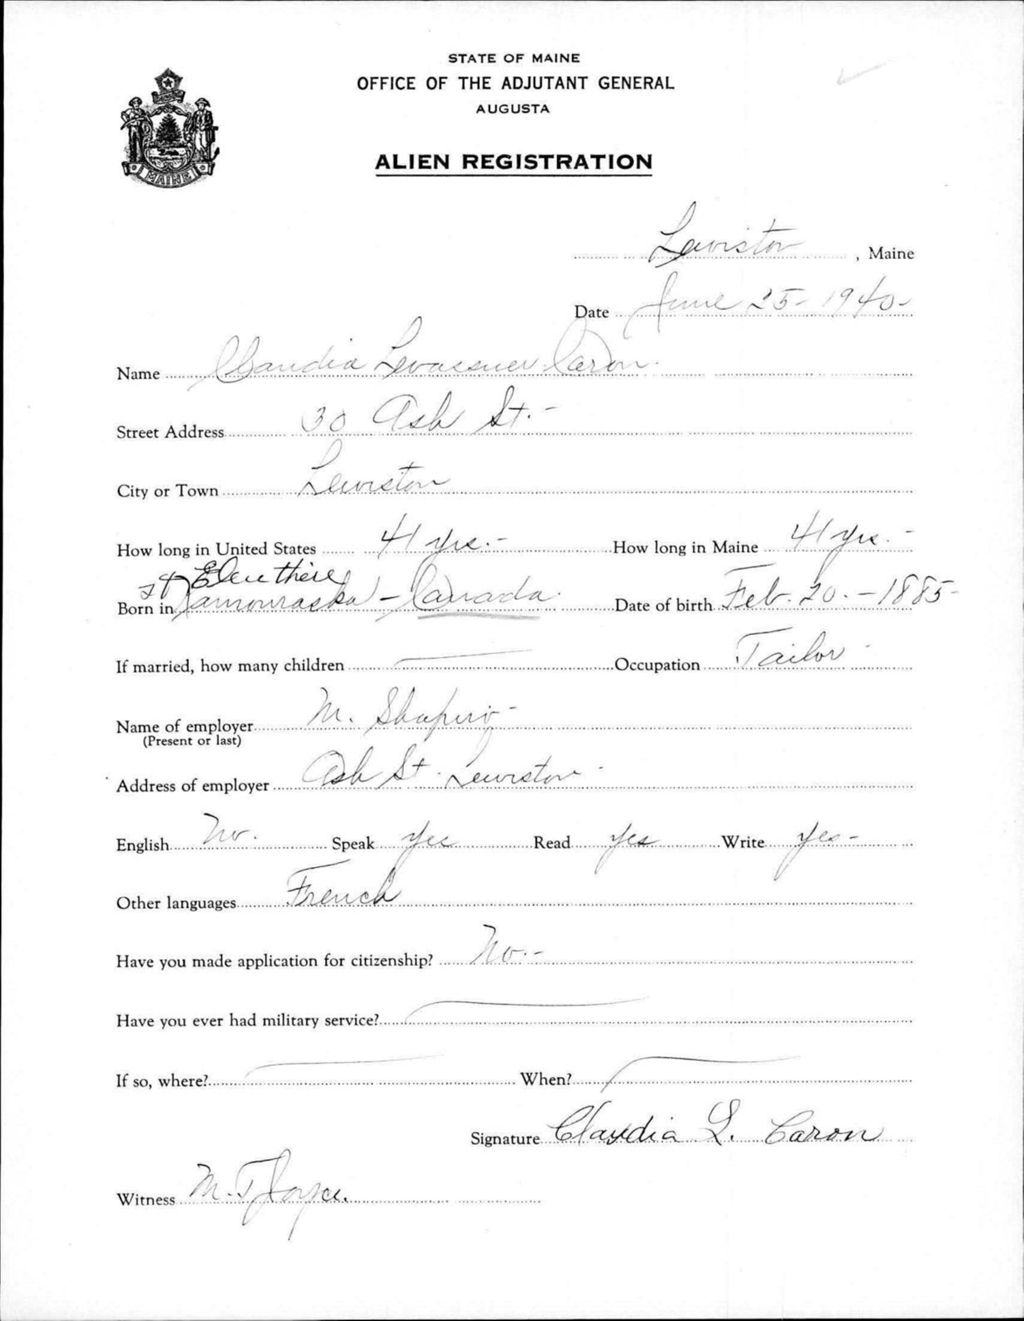 STATE OF MAINE
OFFICE OF THE ADJUTANT GENERAL
AUGUSTA
ALIEN REGISTRATION
MAINE
Lewiston, Maine
Date June 25 - 1940 -
Name Claudia Levasseur Caron
Street Address 30 Ash St. -
City or Town Lewiston
How long in United States 41 yrs. - How long in Maine 41 yrs. -
St Eleuthère
Born in Kamouraska - Canada Date of birth Feb. 20. - 1885 -
If married, how many children — Occupation Tailor -
Name of employer M. Shapiro -
(Present or last)
Address of employer Ash St. Lewiston -
English No. Speak Yes Read Yes Write Yes -
Other languages French
Have you made application for citizenship? No. -
Have you ever had military service? —
If so, where? — When? —
Signature Claudia L. Caron
Witness M. T. Joyce.